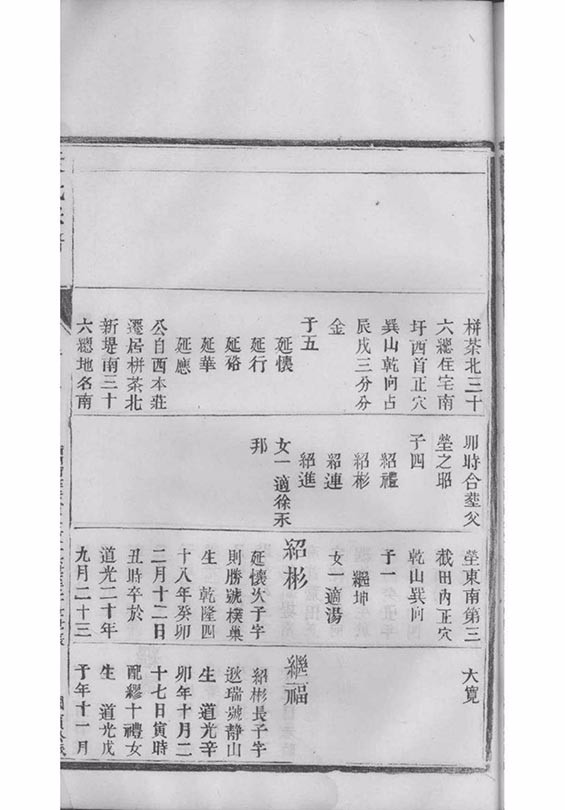 栟茶北三十
六總住宅南
圩西首正穴
巽山乾向占
辰戌三分分
金
子五
延懷
延行
延硌
延華
延應
公自西本莊
遷居栟茶北
新堤南三十
六總地名南
卯時合塟父
塋之昭
子四
紹禮
紹彬
紹連
紹進
女一適徐永
邦
塋東南第三
截田內正穴
乾山巽向
子一
繼坤
女一適湯
紹彬
延懷次子字
則勝號樸巢
生 乾隆四
十八年癸卯
二月十二日
丑時卒於
道光二十年
九月二十三
大寬
繼福
紹彬長子字
瑞號靜山
生 道光辛
卯年十月二
十七日寅時
配繆十禮女
生 道光戊
子年十一月